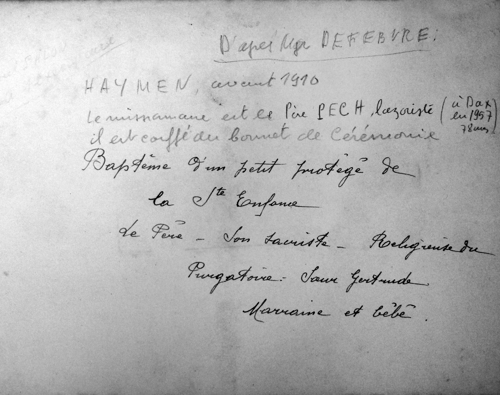 D'après Mgr DEFEBVRE:
HAYMEN, avant 1910
Le missionnaire est le Père PECH, lazariste (à Dax en 1957 78 ans)
il est coiffé du bonnet de Cérémonie
Baptême d'un petit protégé de
la Ste Enfance
Le Père - Son sacriste - Religieuse du
Purgatoire: Sœur Gertrude
Marraine et bébé.